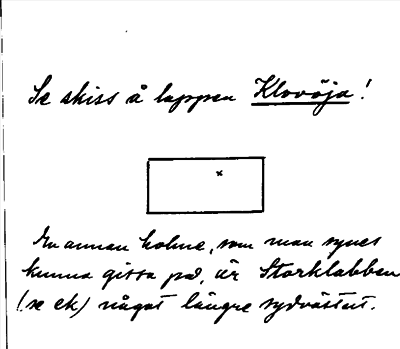 Se skiss å lappen Klovöja!
En annan holme, som man synes
kunna gissa på, är Storklabben
(se ek) något längre sydvästut.